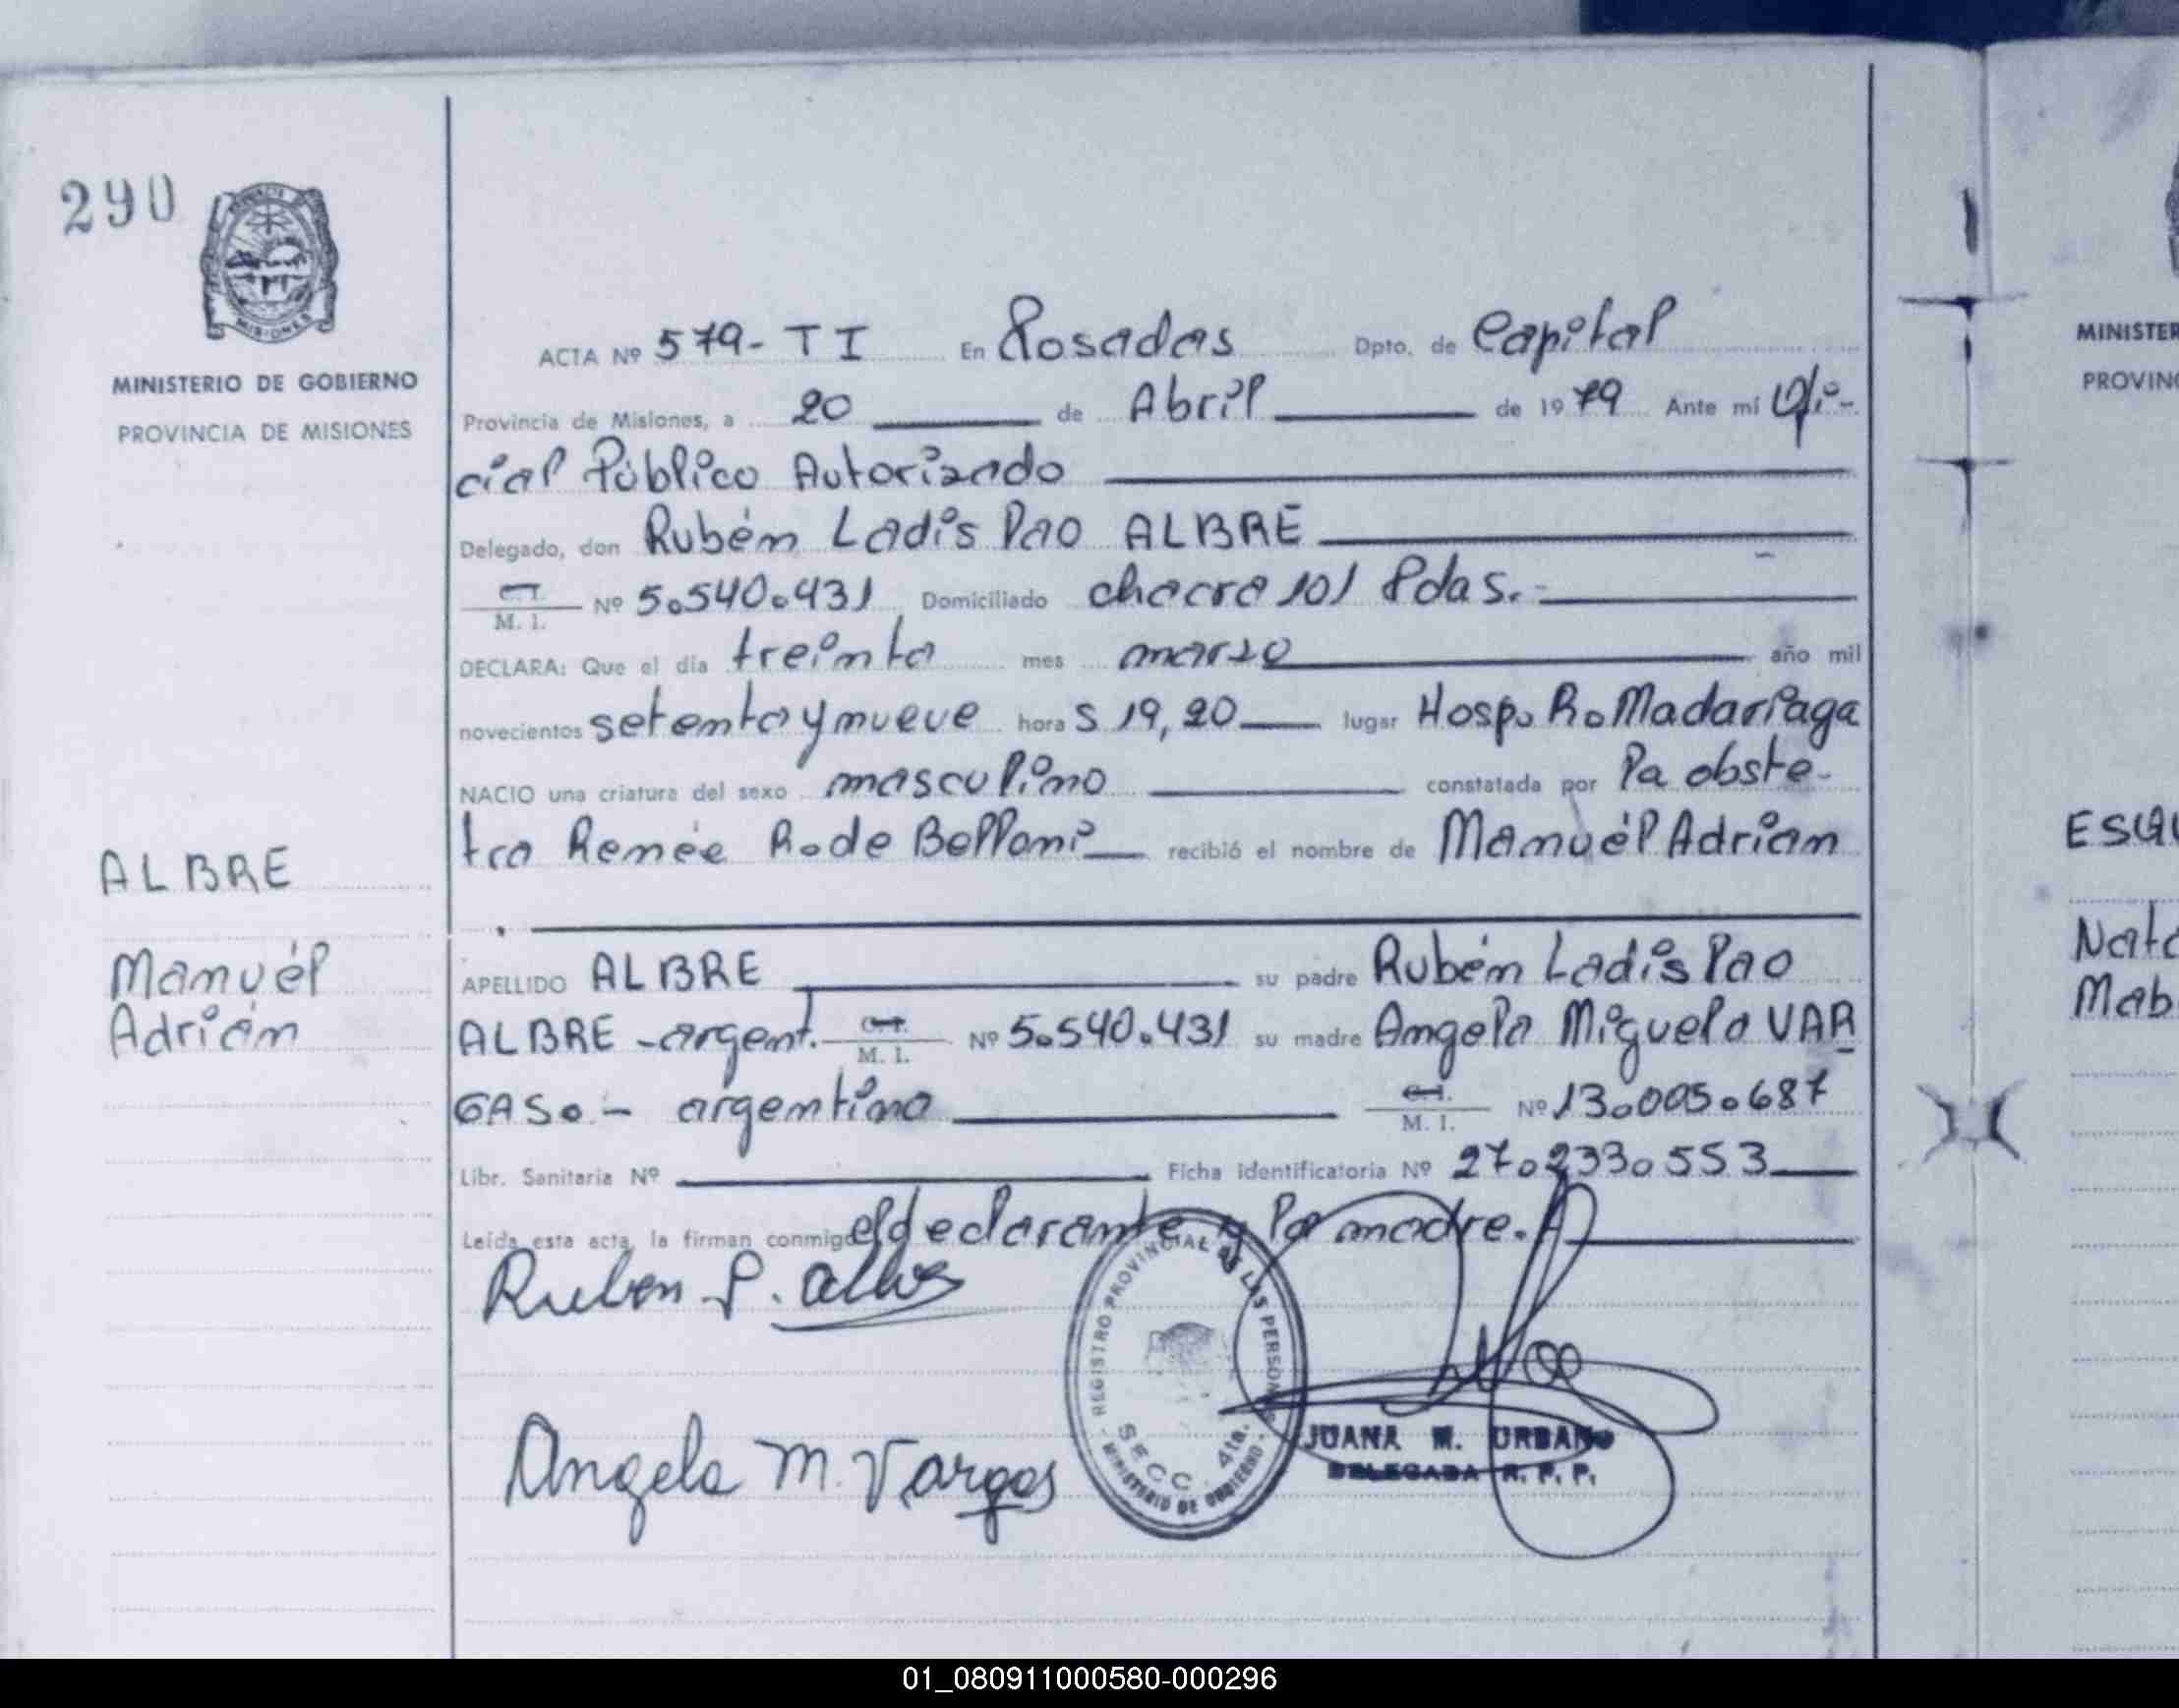 290
MISIONES
MINISTERIO DE GOBIERNO
PROVINCIA DE MISIONES
ALBRE
Manuél
Adrián
ACTA Nº 579-TI En Posadas Dpto. de Capital
Provincia de Misiones, a 20 de Abril de 1979 Ante mí Ofi-
cial Público Autorizado
Delegado, don Rubén Ladislao ALBRE
M. I. Nº 5.540.431 Domiciliado chacra 101 Pdas.-
DECLARA: Que el día treinta mes marzo año mil
novecientos setenta y nueve hora s 19,20 lugar Hosp. R. Madariaga
NACIO una criatura del sexo masculino constatada por la obste-
tra Renée R. de Belloni recibió el nombre de Manuél Adrian
APELLIDO ALBRE su padre Rubén Ladislao
ALBRE - argent. M. I. Nº 5.540.431 su madre Angela Miguela VAR
GAS.- argentina M. I. Nº 13.005.687
Libr. Sanitaria Nº Ficha identificatoria Nº 27.233.553
Leída esta acta, la firman conmigo el declarante y la madre.
Ruben L. Albre
Angela M. Vargas
REGISTRO PROVINCIAL DE LAS PERSONAS
SECC. 4ta.
MINISTERIO DE GOBIERNO
JUANA M. URBANO
DELEGADA R. P. P.
MINISTER
PROVINC
Mab
01_080911000580-000296